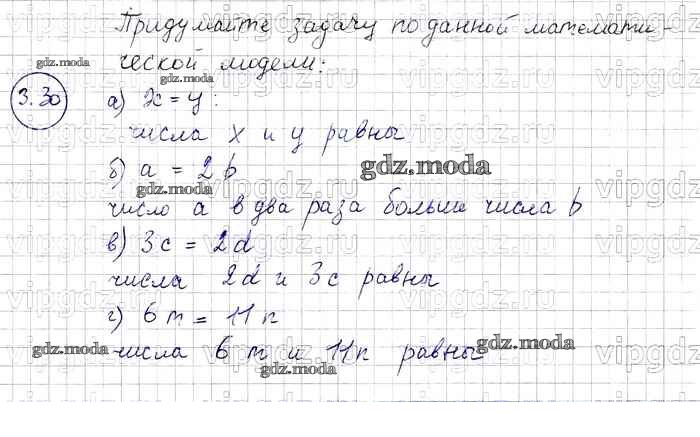 Придумайте задачу по данной математи-
ческой модели:
3.30
а) x = y :
числа x и y равны
б) a = 2b
число a в два раза больше числа b
в) 3c = 2d
числа 2d и 3c равны
г) 6m = 11n
числа 6m и 11n равны
gdz.moda
gdz.moda
gdz.moda
gdz.moda
gdz.moda
gdz.moda
gdz.moda
gdz.moda
vipgdz.ru